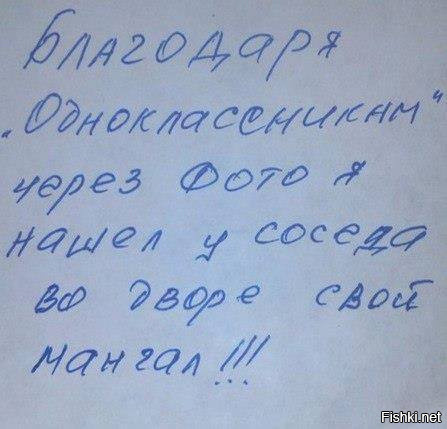 Благодаря
„Одноклассникам“
через фото я
нашел у соседа
во дворе свой
мангал!!!
Fishki.net